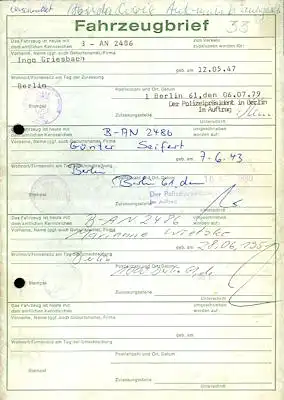 Fahrzeugbrief
33
Das Fahrzeug ist heute mit dem amtlichen Kennzeichen B-AN 2486 zum Verkehr zugelassen worden für:
Vorname, Name (ggf. auch Geburtsname), Firma
Ingo Griesbach geb. am 12.05.47
Wohnort/Firmensitz am Tag der Zulassung
Berlin
Postleitzahl und Ort, Datum
1 Berlin 61, den 06.07.79
Der Polizeipräsident in Berlin
Stempel
Im Auftrag
Zulassungsstelle
Unterschrift
Das Fahrzeug ist heute mit dem amtlichen Kennzeichen B-AN 2486 umgeschrieben worden auf:
Vorname, Name (ggf. auch Geburtsname), Firma
Günter Seifert geb. am 7.6.43
Wohnort/Firmensitz am Tag der Umschreibung
Berlin
Berlin 61, den
Stempel
Im Auftrag
Zulassungsstelle
Unterschrift
Das Fahrzeug ist heute mit dem amtlichen Kennzeichen B-AN 2486 umgeschrieben worden auf:
Vorname, Name (ggf. auch Geburtsname), Firma
Marianne geb. am
Wohnort/Firmensitz am Tag der Umschreibung
Postleitzahl und Ort, Datum
Stempel
Zulassungsstelle
Unterschrift
Das Fahrzeug ist heute mit dem amtlichen Kennzeichen umgeschrieben worden auf:
Vorname, Name (ggf. auch Geburtsname), Firma
geb. am
Wohnort/Firmensitz am Tag der Umschreibung
Postleitzahl und Ort, Datum
Stempel
Zulassungsstelle
Unterschrift